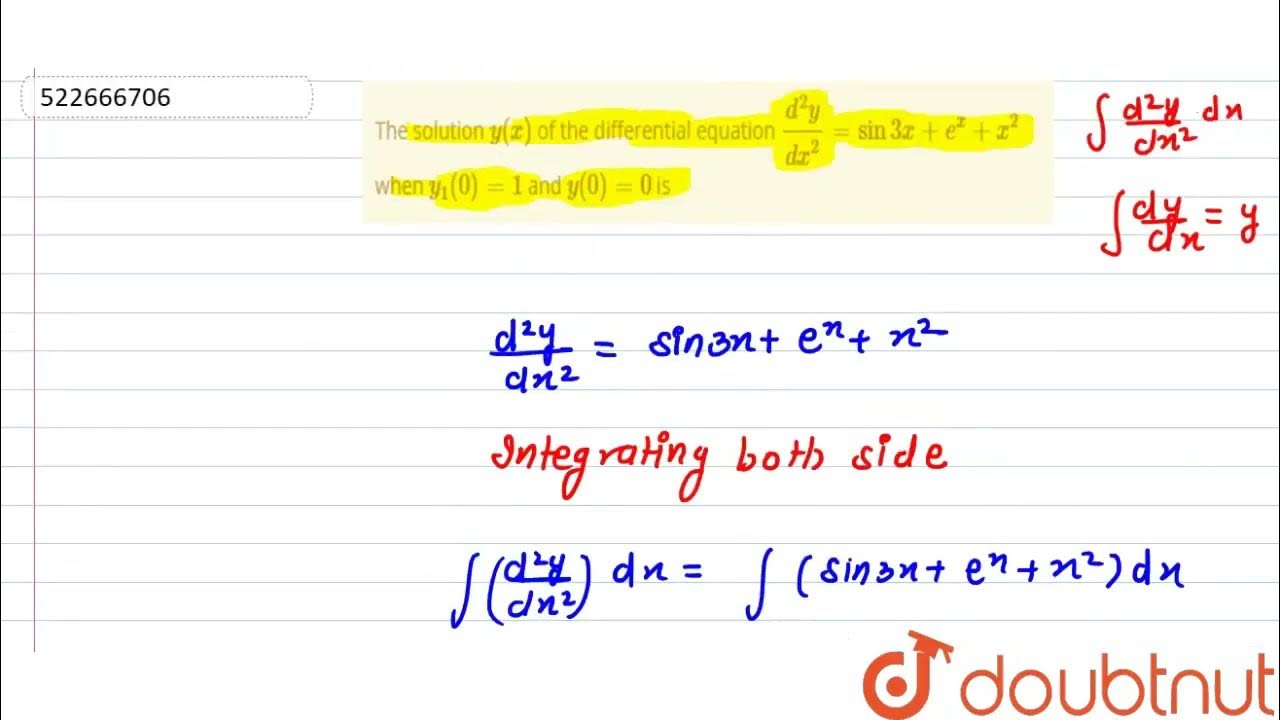 522666706
The solution y(x) of the differential equation d²y/dx² = sin 3x + eˣ + x²
when y₁(0) = 1 and y(0) = 0 is
∫ d²y/dx² dx
∫ dy/dx = y
d²y/dx² = sin3x + eˣ + x²
Integrating both side
∫ (d²y/dx²) dx = ∫ (sin3x + eˣ + x²) dx
doubtnut